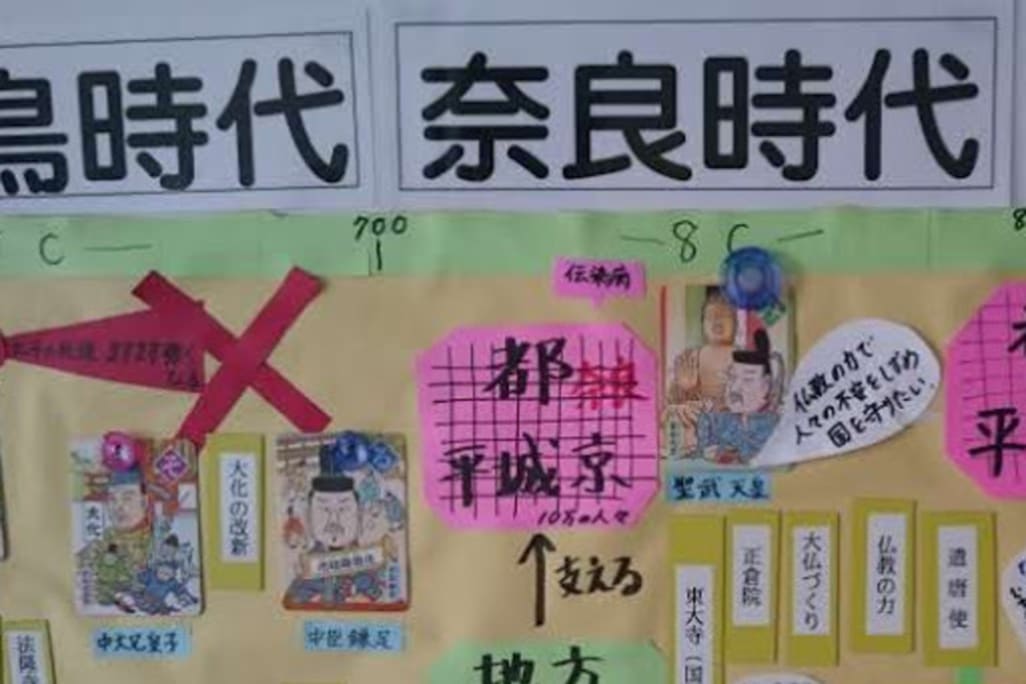 鳥時代
奈良時代
C
700
8C
伝染病
都 奈良
平城京
10万の人々
仏教の力で
人々の不安をしずめ
国を守りたい。
聖武天皇
大化の改新
中大兄皇子
中臣鎌足
支える
地方
東大寺(国
正倉院
大仏づくり
仏教の力
遣唐使
平